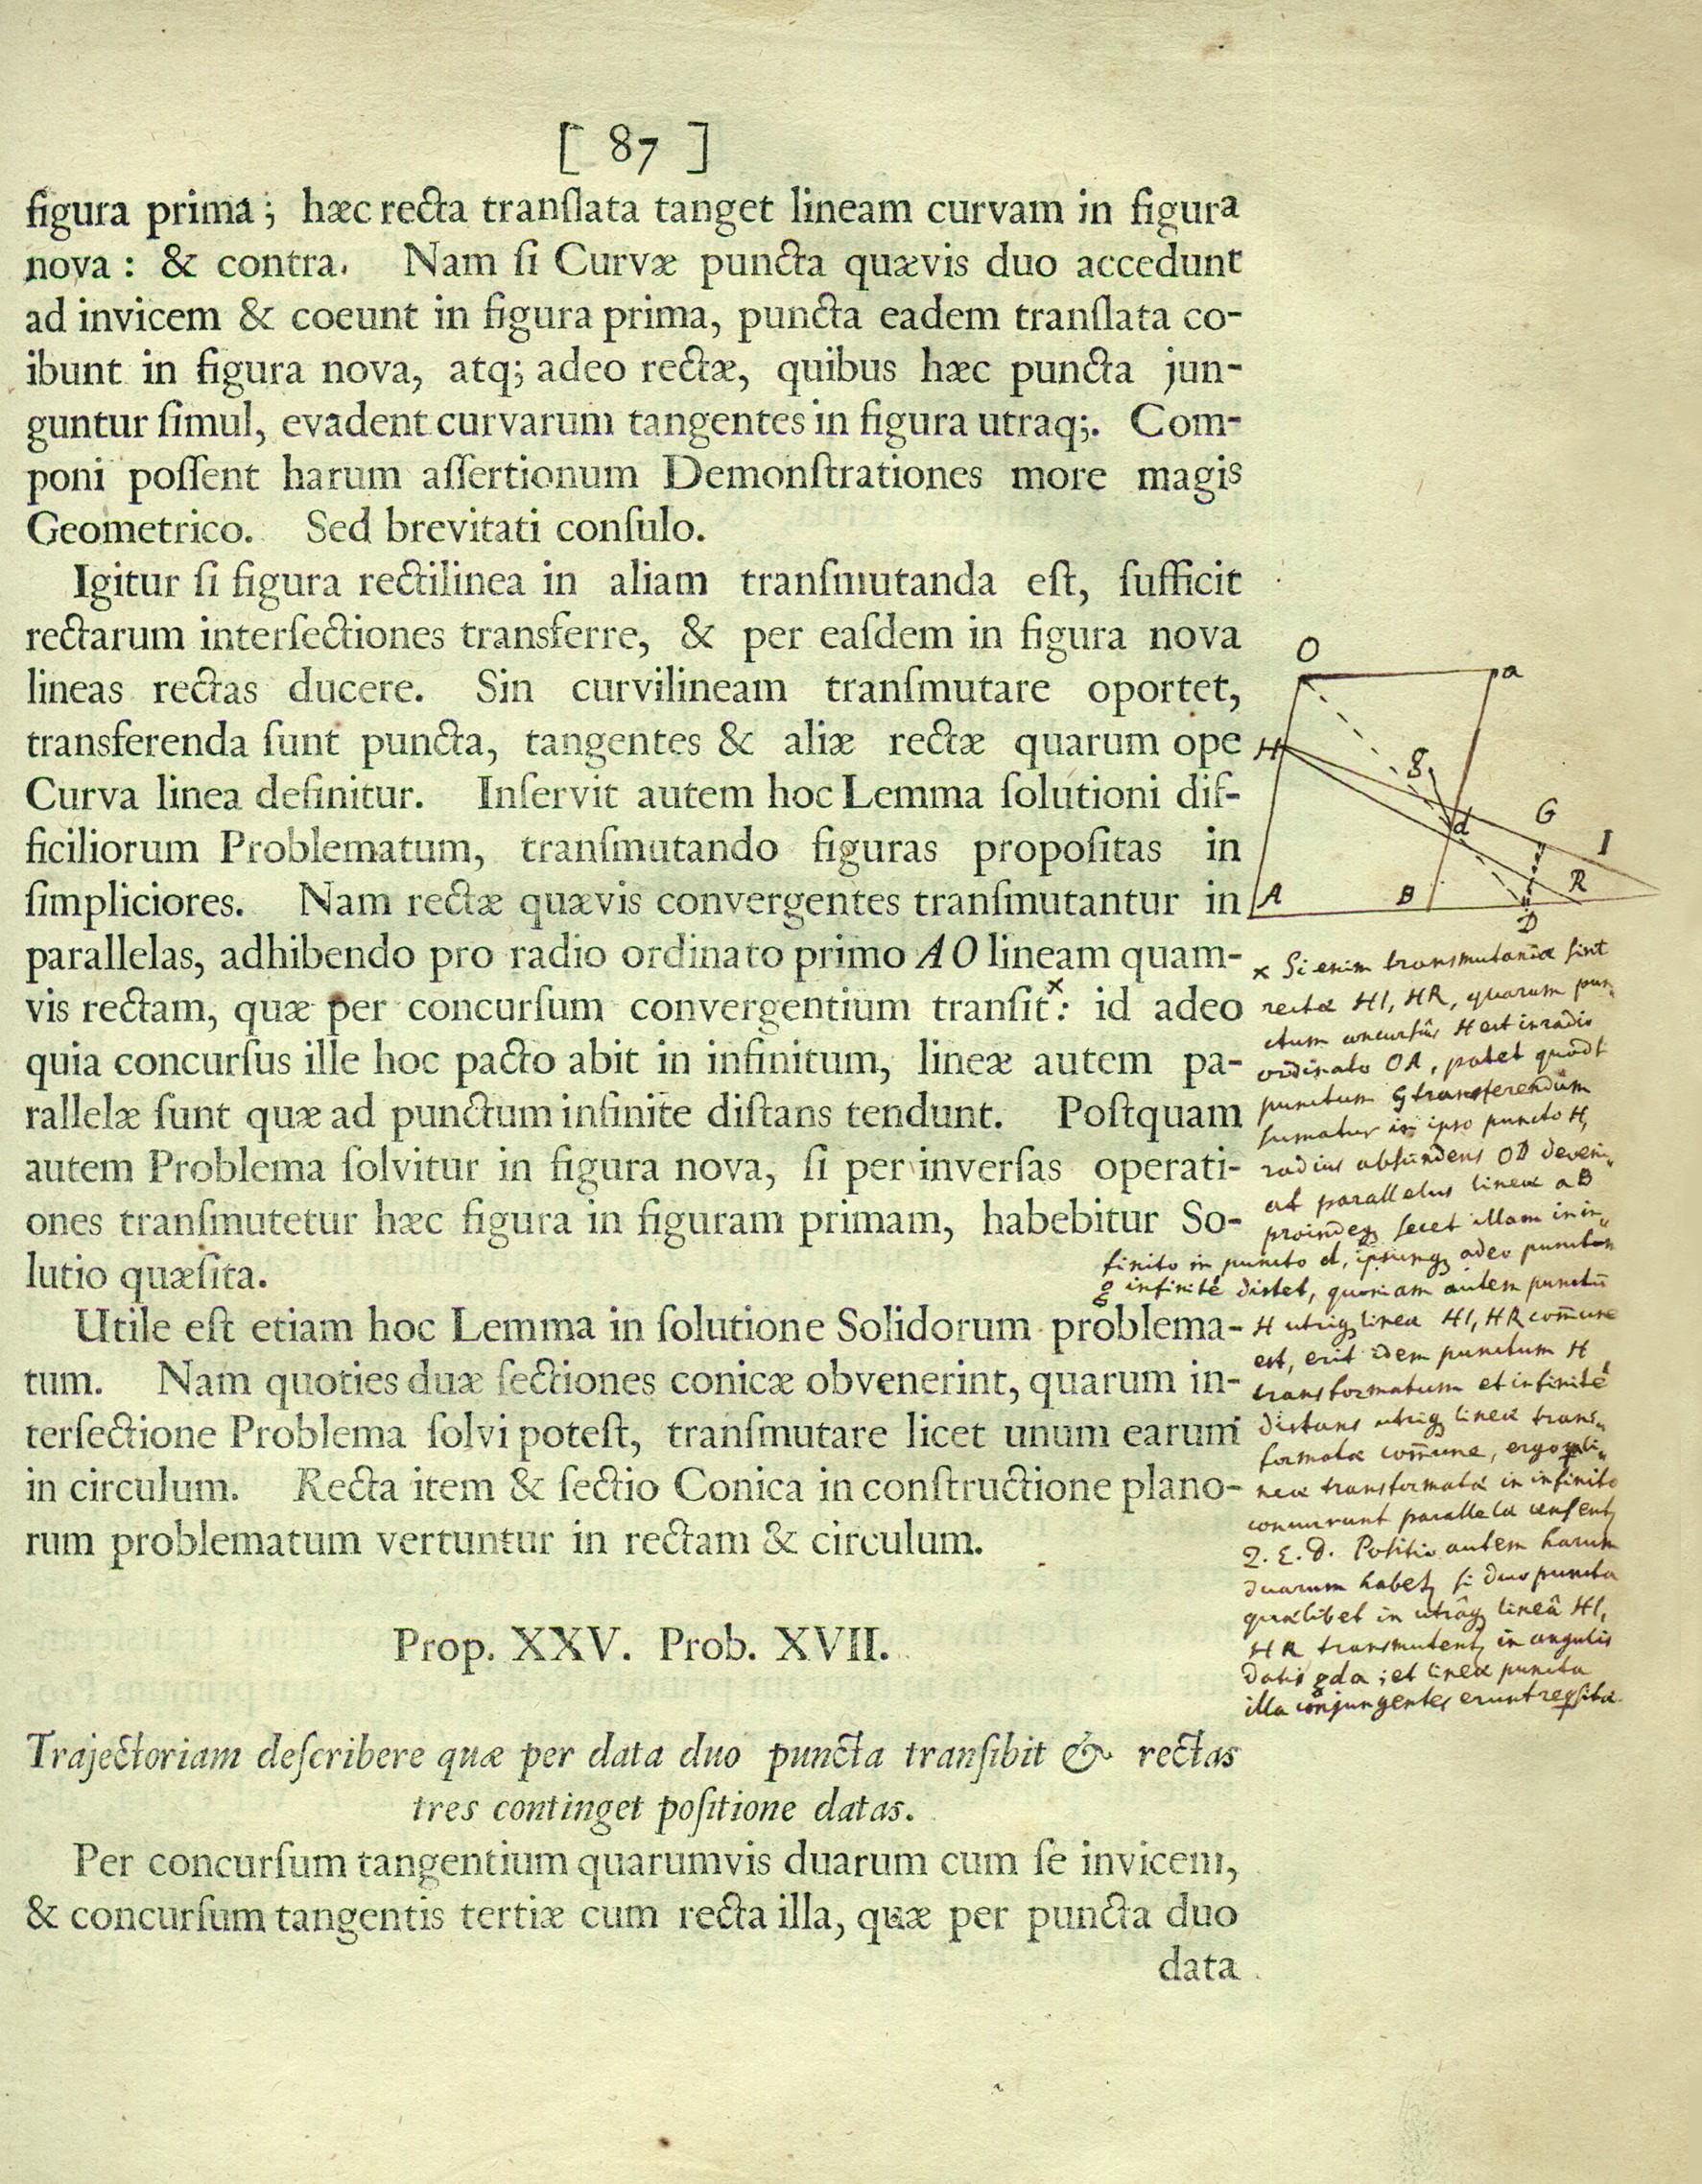 [ 87 ]
figura prima; hæc recta tranſlata tanget lineam curvam in figura
nova: & contra. Nam ſi Curvæ puncta quævis duo accedunt
ad invicem & coeunt in figura prima, puncta eadem tranſlata co-
ibunt in figura nova, atq; adeo rectæ, quibus hæc puncta jun-
guntur ſimul, evadent curvarum tangentes in figura utraq;. Com-
poni poſſent harum aſſertionum Demonſtrationes more magis
Geometrico. Sed brevitati conſulo.
Igitur ſi figura rectilinea in aliam tranſmutanda eſt, ſufficit
rectarum interſectiones transferre, & per eaſdem in figura nova
lineas rectas ducere. Sin curvilineam tranſmutare oportet,
transferenda ſunt puncta, tangentes & aliæ rectæ quarum ope
Curva linea definitur. Inſervit autem hoc Lemma ſolutioni dif-
ficiliorum Problematum, tranſmutando figuras propoſitas in
ſimpliciores. Nam rectæ quævis convergentes tranſmutantur in
parallelas, adhibendo pro radio ordinato primo AO lineam quam-
vis rectam, quæ per concurſum convergentium tranſit x: id adeo
quia concurſus ille hoc pacto abit in infinitum, lineæ autem pa-
rallelæ ſunt quæ ad punctum infinite diſtans tendunt. Poſtquam
autem Problema ſolvitur in figura nova, ſi per inverſas operati-
ones tranſmutetur hæc figura in figuram primam, habebitur So-
lutio quæſita.
Utile eſt etiam hoc Lemma in ſolutione Solidorum problema-
tum. Nam quoties duæ ſectiones conicæ obvenerint, quarum in-
terſectione Problema ſolvi poteſt, tranſmutare licet unum earum
in circulum. Recta item & ſectio Conica in conſtructione plano-
rum problematum vertuntur in rectam & circulum.
Prop. XXV. Prob. XVII.
Trajectoriam deſcribere quæ per data duo puncta tranſibit & rectas
tres continget poſitione datas.
Per concurſum tangentium quarumvis duarum cum ſe invicem,
& concurſum tangentis tertiæ cum recta illa, quæ per puncta duo
data
O a
H g
d G I
A B R
D
x Si enim transmutandæ sint
rectæ HI, HR, quarum pun„
ctum concursûs H est in radio
ordinato OA, patet quod
punctum G transferendum
sumatur in ipso puncto H,
radius abscindens OD deveni„
at parallelus lineæ aB
proindeq; secet illam in in„
finito in puncto d, ipsumq; adeo punctum
g infinitè distet, quoniam autem punctū
H utriq; lineæ HI, HR com̄une
est, erit idem punctum H
transformatum et infinitè
distans utriq; lineæ trans„
formatæ com̄une, ergo
neæ transformatæ in infinito
concurrunt parallela
Q. E. D. Positio autem harum
duarum si duo puncta
quælibet in utrâq; lineâ HI,
HR in angulis
datis gda; et lineæ puncta
illa conjungentes erunt